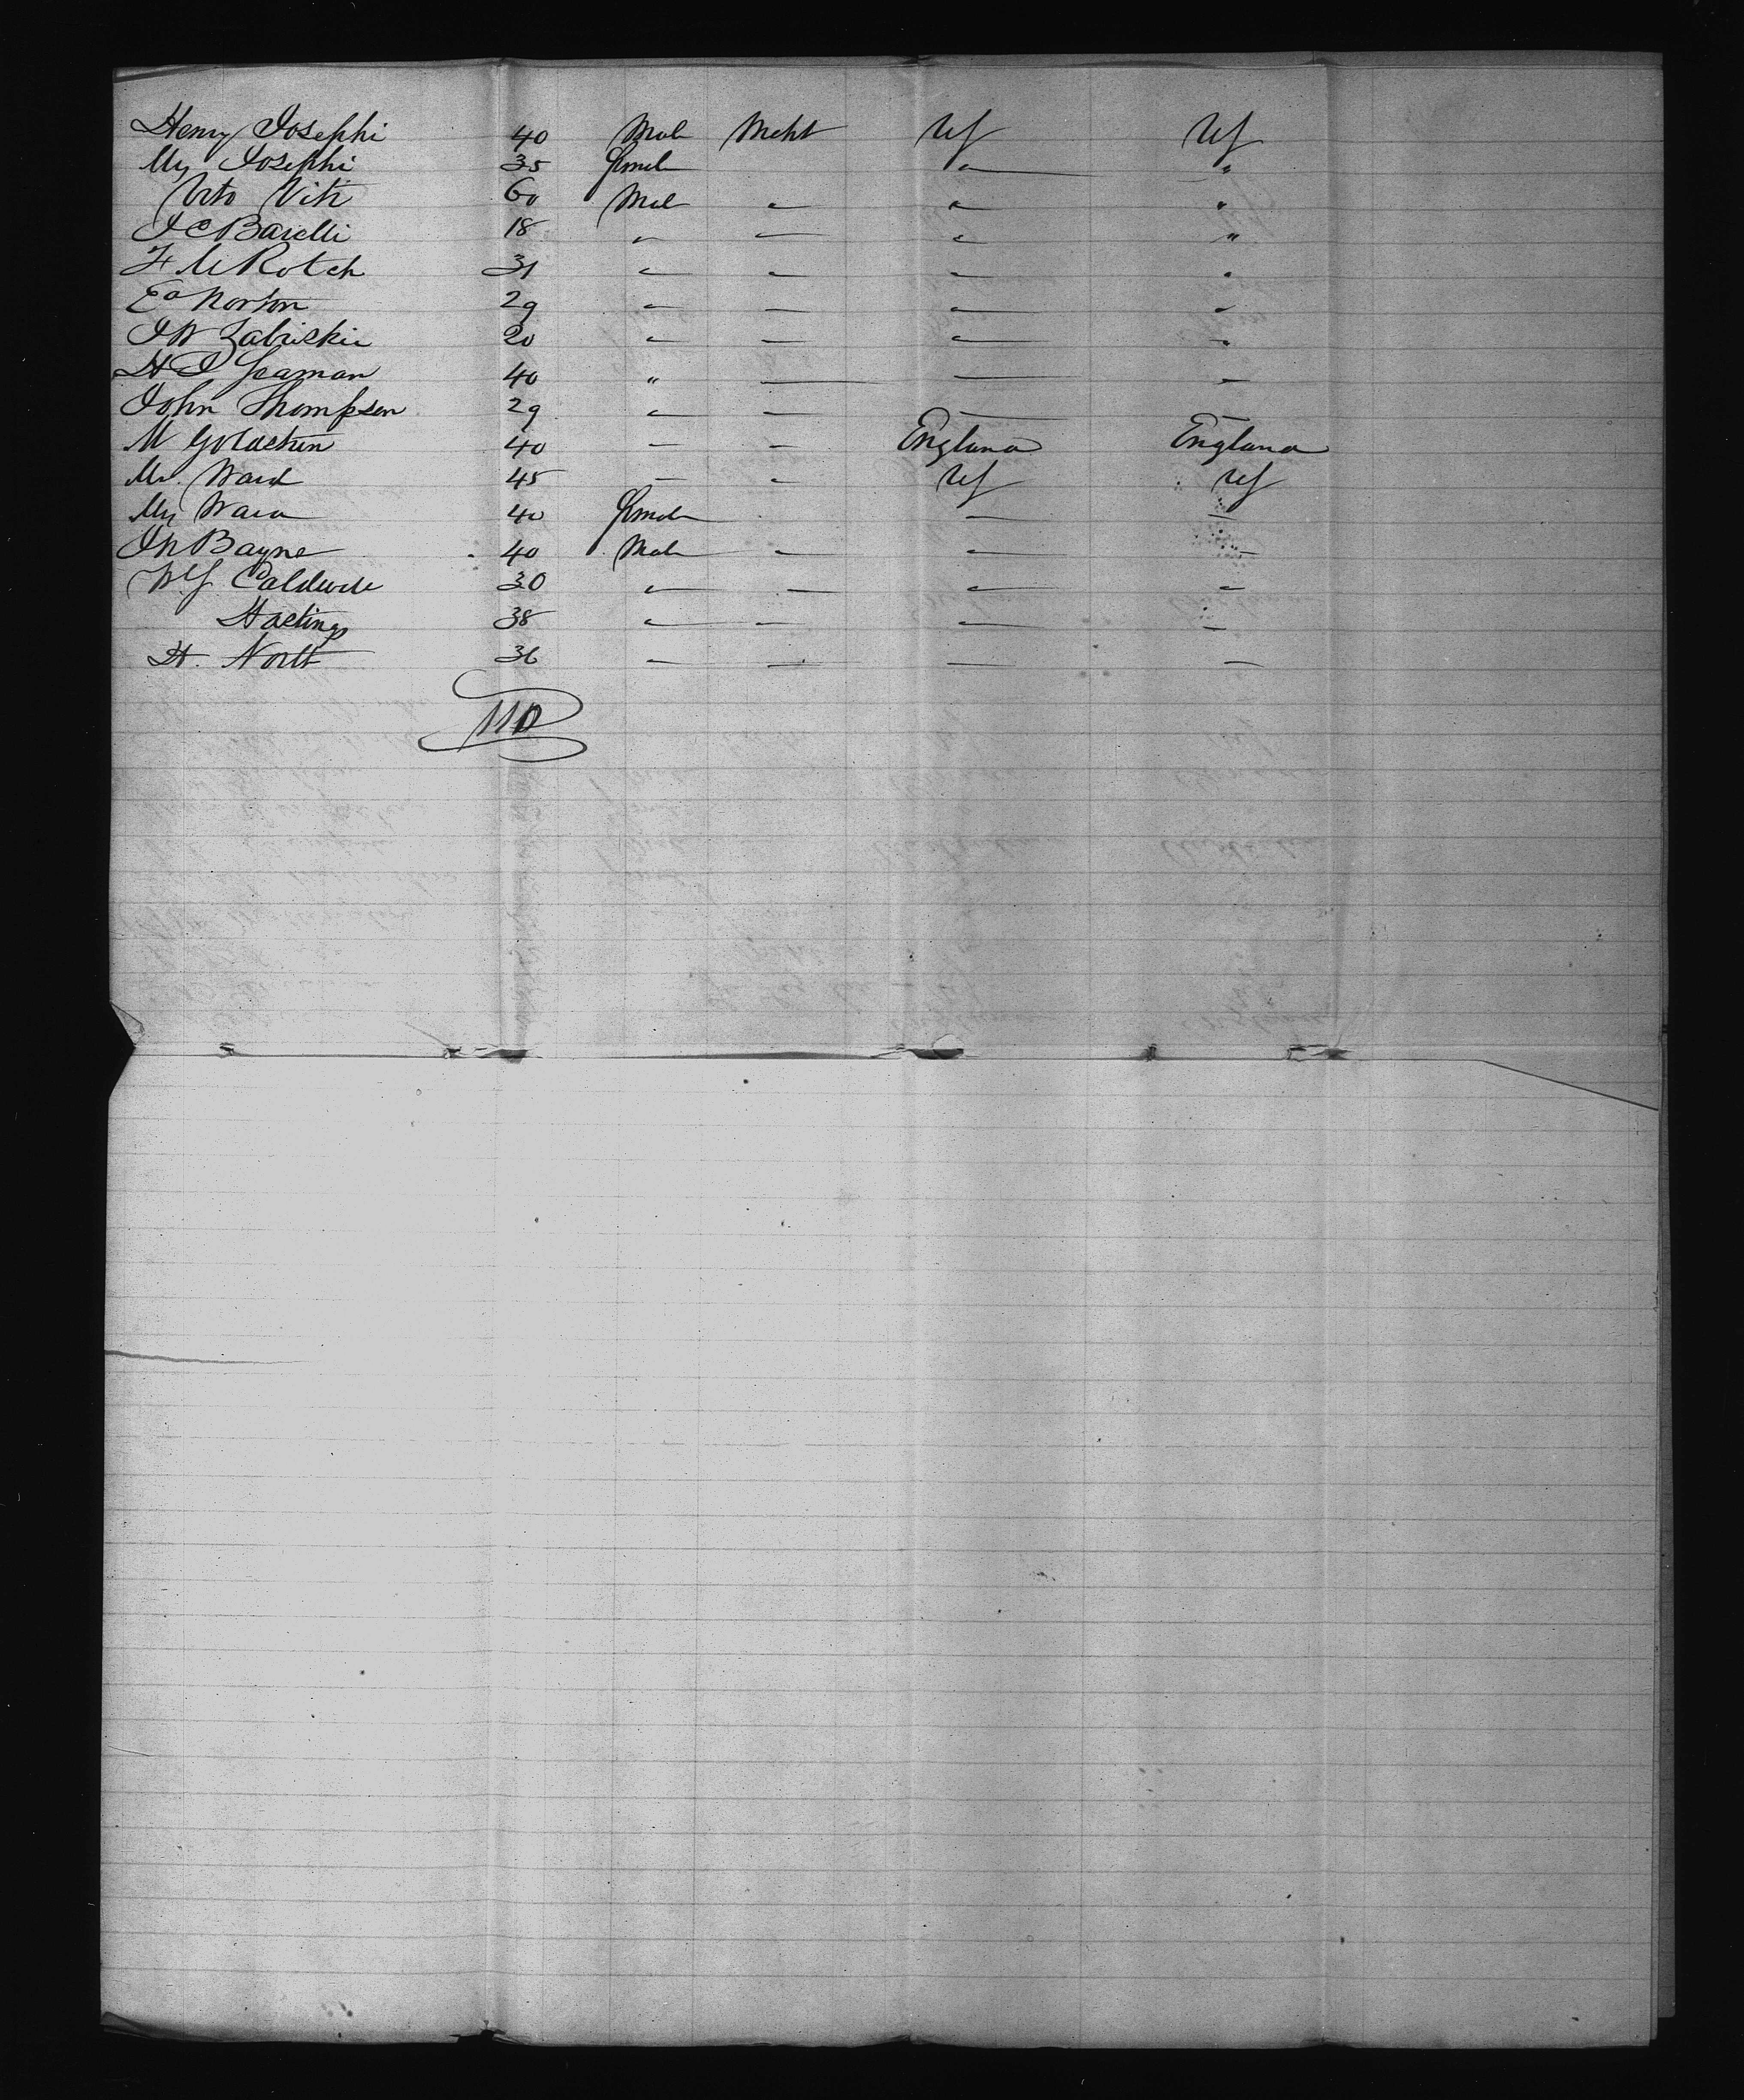 Henry Josephi 40 Male Mcht US US
Mrs Josephi 35 female " "
Vito Viti 60 Male " " "
J C Barelli 18 " — " "
F M Rotch 31 " " " "
Ed Norton 29 " — " "
J W Zabriskie 20 " — — "
H I Seaman 40 " — — —
John Thompson 29 " — — —
M Goldschen 40 — — England England
Mr. Ward 45 — " US US
Mrs Ward 40 female — —
Jn Bayne 40 Male " " —
W S Caldwell 30 " — " "
Hastings 38 " — — —
H. North 36 — — — —
110